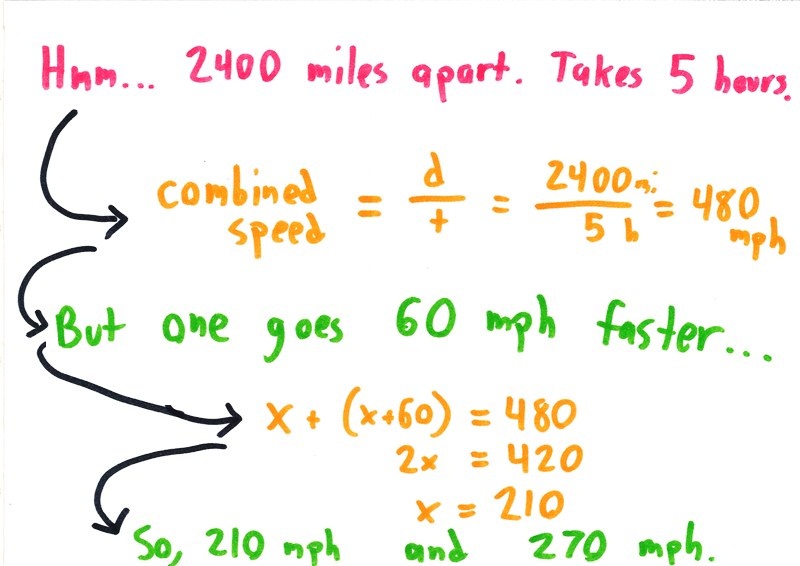 Hmm... 2400 miles apart. Takes 5 hours.
combined speed = d/t = 2400mi/5 h = 480 mph
But one goes 60 mph faster...
x + (x+60) = 480
2x = 420
x = 210
So, 210 mph and 270 mph.